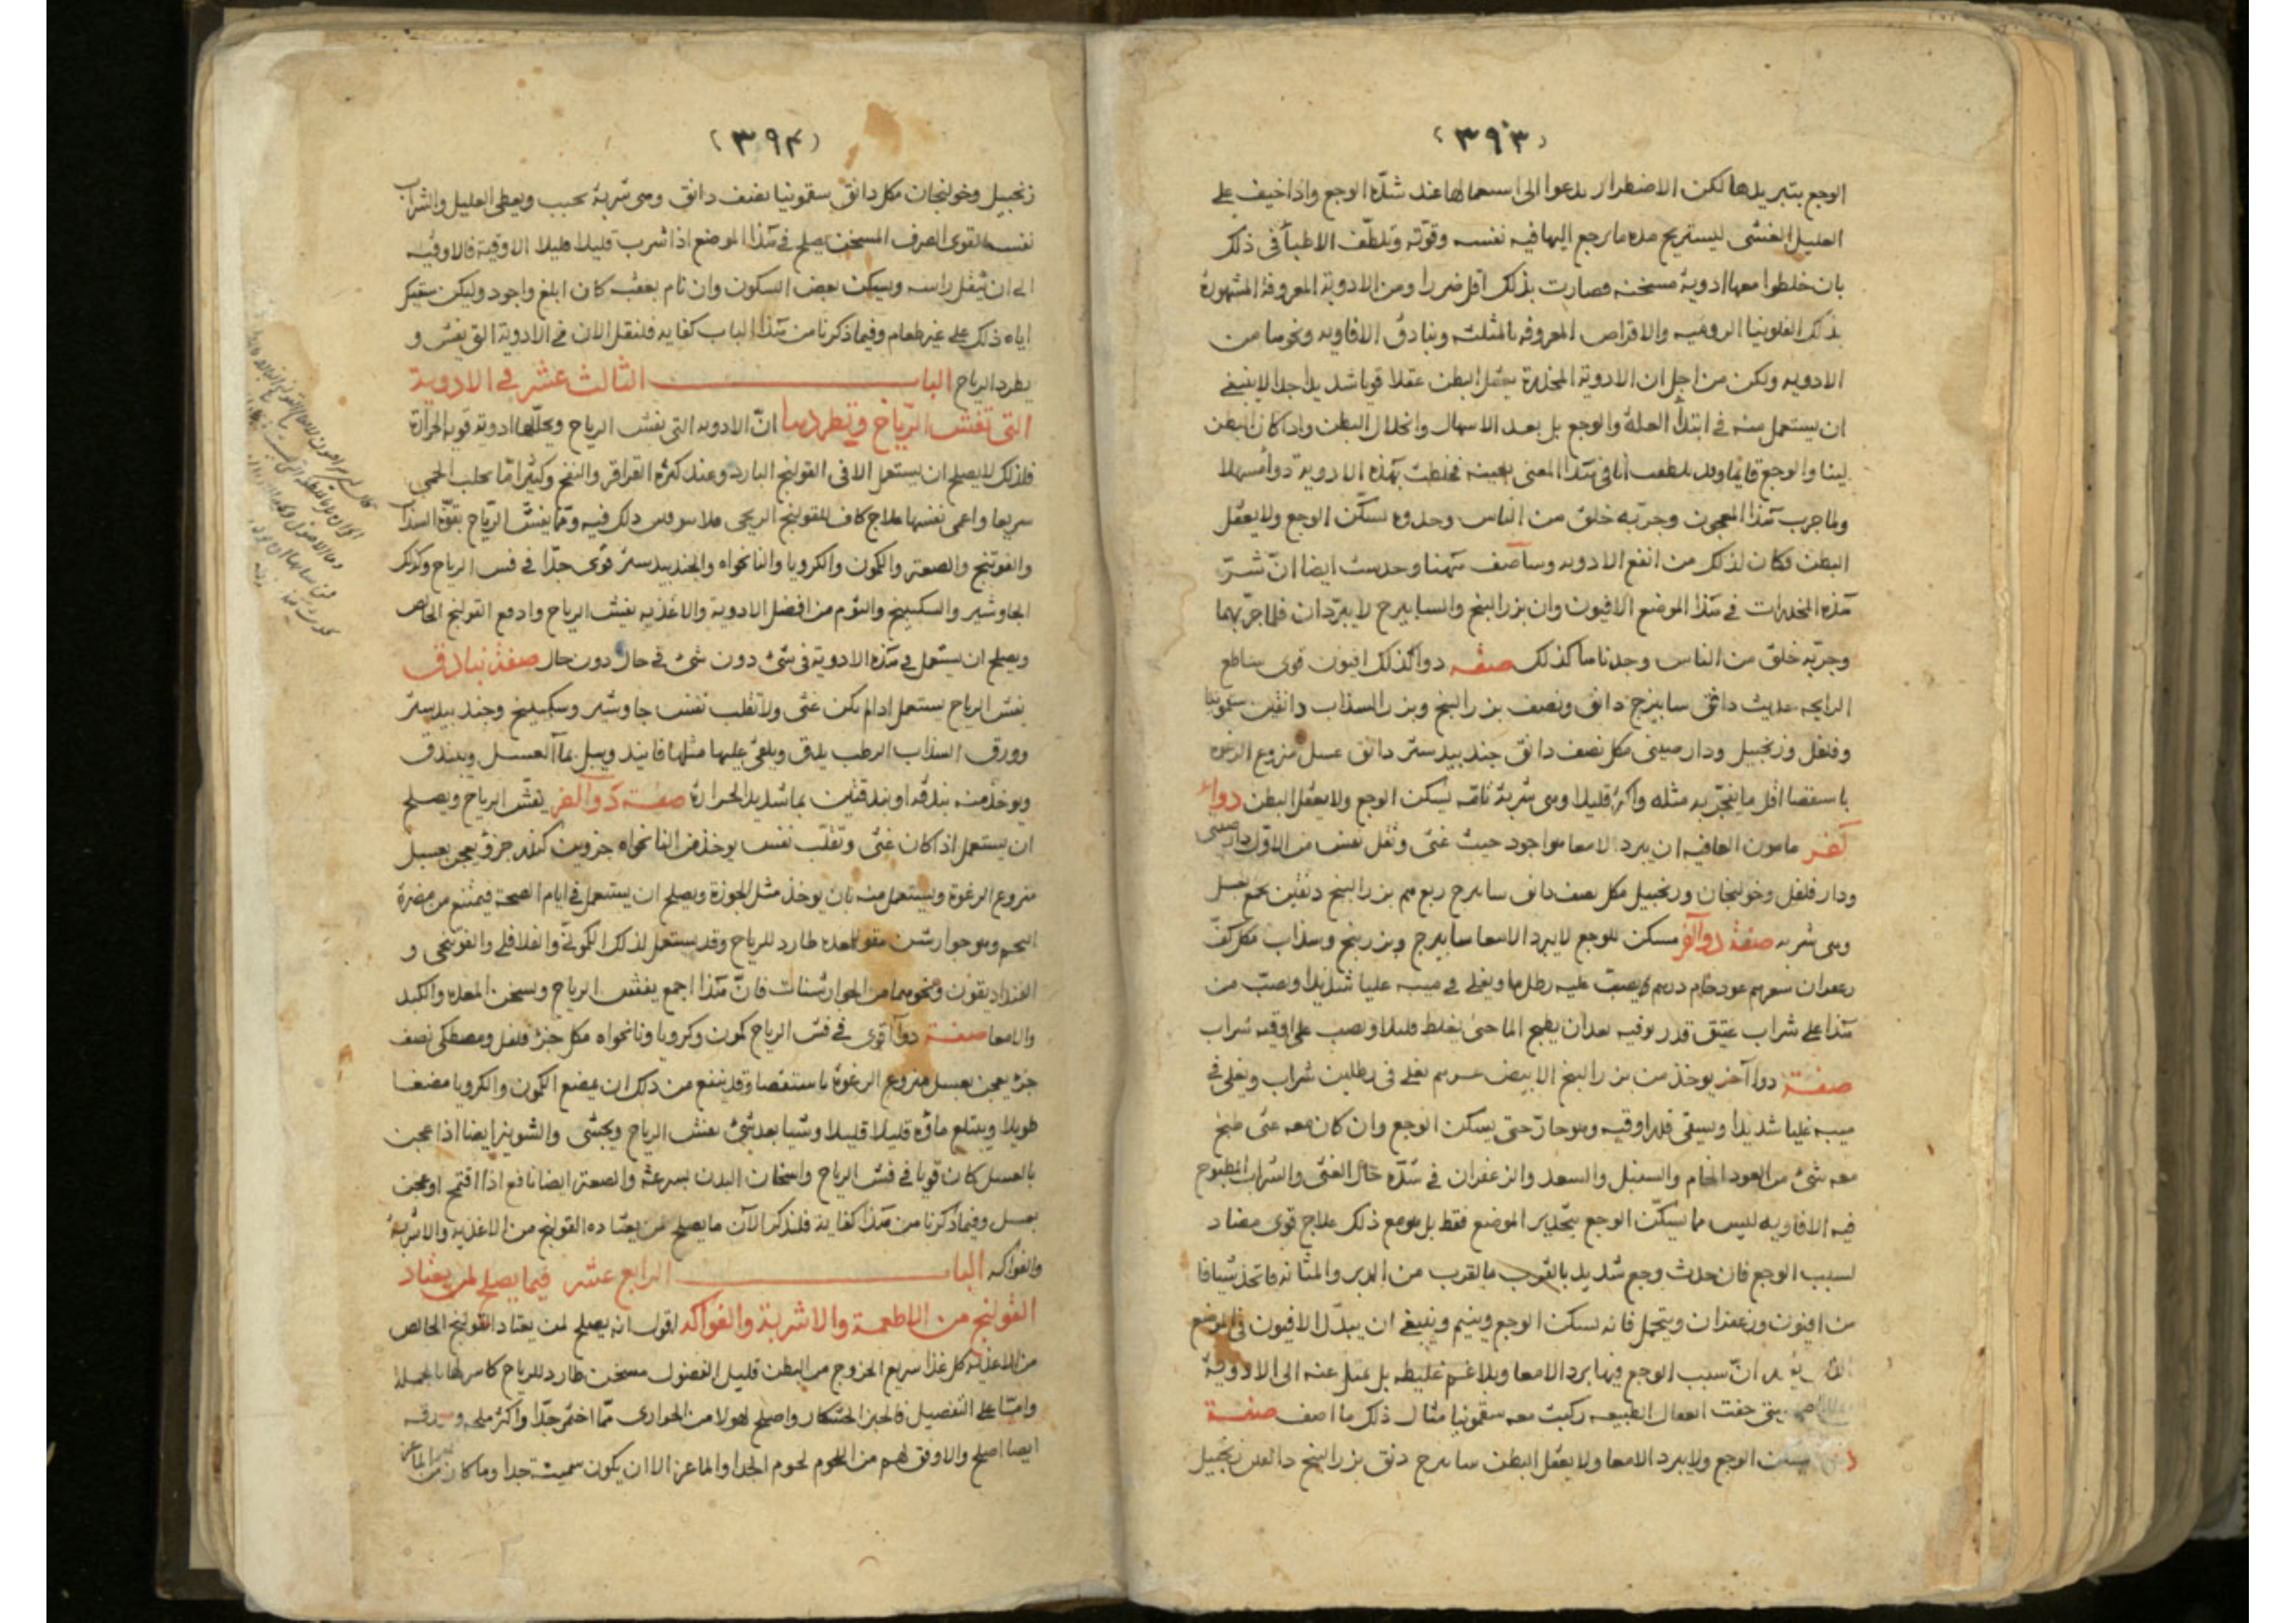 (٣٩٣)
الوجع بتبريدها لكن الاضطرار يدعوا الى استعمالها عند شدّة الوجع واذا خيف على
العليل الغشى ليستريح مدة ما يرجع اليها فيه نفسه وقوته وتلطّف الاطبأ فى ذلك
بان خلطوا معها ادوية مسخنه فصارت بذلك اقل ضررا ومن الادوية المعروفة المشهورة
بذلك الفلونيا الروميه والاقراص المعروفه بالمثلث وبنادق الافاويه ونحوها من
الادويه ولكن من اجل ان الادوية المخدرة يعقل البطن عقلا قويا شديدا جدا لا ينبغى
ان يستعمل منه فى ابتدأ العلة والوجع بل بعد الاسهال وانحلال البطن واذا كان البطن
لينا والوجع قايما وقد تلطفت انا فى هذا المعنى بعينه فخلطت بهذه الادوية دوأ مسهلا
ولما جرب هذا المعجون وجرّبه خلق من الناس وحدوه يسكّن الوجع ولا يعقل
البطن فكان لذلك من انفع الادويه وساصف ههنا وحدست ايضا انّ شرّ
هذه المخدرات فى هذا الموضع الافيون وان بزر البنج والسابيزج لا يبرّدان فلما جرّبهما
وجرّبه خلق من الناس وجدناها كذلك صفه دوا كذلك افيون قوى ساطع
الرايحه حديث دانق سابيزج دانق ونصف بزر البنج وبزر السذاب دانقين سقمونيا
وفلفل وزنجبيل ودار صينى مكل نصف دانق جندبيدستر دانق عسل منزوع الرغوه
باستقصا اقل ما ينجّز به مثله واكثر قليلا وهى شربة تامّه يسكن الوجع ولا يعقل البطن دواء
آخر مامون العاقبه ان يبرد الامعا هو اجود حيث غثى وتقل نفس من الاوّل دار صينى
ودار فلفل وخولنجان وزنجبيل مكل نصف دانق سابيزج ربع درهم بزر البنج دنقين يجمع بعسل
وهى شربه صفة دوا آخر مسكن للوجع لا يبرد الامعا سابيزج وبزر بنج وسذاب مكل كفّ
زعفران درهم عود خام درهم يصبّ عليه رطل ما ويغلى فى ميبه غليا شديدا ويصبّ من
هذا على شراب عتيق قدر اوقيه بعد ان يطبخ الما حتى يغلط قليلا ويصب على اوقيه شراب
صفة دوا آخر يوخذ من بزر البنج الابيض درهم يغلى فى رطلين شراب ويغلى فى
ميبه غليا شديدا ويسقى قدر اوقيه وهو حارّ حتى يسكن الوجع وان كان معه غثى طبخ
معه شئ من العود الخام والسنبل والسعد والزعفران فى شدّة حال الغثى والشراب المطبوخ
فيه الافاويه ليس ما يسكّن الوجع بتخدير الموضع فقط بل هو مع ذلك علاج قوى مضاد
لسبب الوجع فان حدث وجع شديد بالقرب مالقرب من الدبر والمثانة فاتخذ شيافا
من افيون وزعفران ويتحمل فانه يسكن الوجع وينيم وينبغى ان يبدّل الافيون فى الموضع
انّ سبب الوجع فيها برد الامعا وبلاغم غليظه بل عدل عنه الى الادوية
متى خفت انعقال الطبيعه ركبت معه سقمونيا مثال ذلك ما اصف صفة
يسكن الوجع ولا يبرد الامعا ولا يعقل البطن سابيزج دنق بزر البنج دانقين زنجبيل
(٣٩٤)
زنجبيل وخولنجان مكل دانق سقمونيا نصف دانق وهى شربة يحبب ويعطى العليل والشراب
نفسه القوى الصرف المسخن يصلح فى هذا الموضع اذا شرب قليلا قليلا الاوقية فالاوقيه
الى ان يثقل راسه ويسكن بعض السكون وان نام بعقبه كان ابلغ واجود وليكن سقيك
اياه ذلك على غير طعام وفيما ذكرنا من هذا الباب كفايه فلنقل الان فى الادوية التى يفش و
يطرد الرياح الباب الثالث عشر فى الادوية
التى تفش الرّياح وتطردها انّ الادويه التى يفش الرياح ويحلّلها ادوية قويه الحرارة
فلذلك لا يصلح ان يستعمل الا فى القولنج البارد وعند كثرة القراقر والنفخ وكثيرا ما يجلب الحمى
سريعا واعى نفسها علاج كاف للقولنج الريحى فلا سوس ذلك فيه وممّا يفش الرّياح بقوّة السذاب
والفوتنج والصعتر والكمون والكرويا والنانخواه والجندبيدستر قوى جدّا فى فش الرياح وكذلك
الجاوشير والسكبينج والثوم من افضل الادوية والاغذيه يفش الرياح وادفع القولنج الخالص
ويصلح ان يستعمل فى هذه الادوية فى شئ دون شئ فى حال دون حال صفة بنادق
يفش الرياح يستعمل اذا لم يكن غثى ولا تقلب نفس جاوشير وسكبينج وجندبيدستر
وورق السذاب الرطب يدق ويلقى عليها مثلها فانيد ويبل بماآلعسل ويبندق
ويوخذ منه بندقه او بندقتين بما شديد الحرارة صفة دوآآخر يفشّ الرياح ويصلح
ان يستعمل اذا كان غثى وتقلّب نفس يوخذ من النانخواه جزوين كندر جزؤ يعجن بعسل
منزوع الرغوة ويستعمل منه بان يوخذ مثل الجوزة ويصلح ان يستعمل فى ايام الصحة فيمتنع من مضرة
التخم وهو جوارشن مقو للمعده طارد للرياح وقد يستعمل لذلك الكمونىّ والفلافلى والفوتنجى و
الفنداديقون ونحوهما من الجوارشنات فانّ هذا اجمع يفش الرياح ويسخن المعده والكبد
والامعا صفة دوآ اقوى فى فش الرياح كمون وكرويا ونانخواه مكل جزؤ فلفل ومصطكى نصف
جزؤ يعجن بعسل منزوع الرغوة باستقصا وقد ينفع من ذلك ان يمضغ الكمون والكرويا مضغا
طويلا ويبتلع ماؤه قليلا قليلا وشيا بعد شئ يفش الرياح ويجشى والشونيز ايضا اذا عجن
بالعسل كان قويا فى فش الرياح واسخان البدن بسرعة والصعتر ايضا نافع اذا اقتمح او عجن
بعسل وفيما ذكرنا من هذا كفاية فلنذكر الآن ما يصلح لمن يعتاده القولنج من الاغذيه والاشربة
والفواكه الباب الرابع عشر فيما يصلح لمن يعتاد
القولنج من الاطعمة والاشربة والفواكه اقول انه يصلح لمن يعتاد القولنج الخالص
من الاغذيه كل غذا سريع الخروج من البطن قليل الفضول مسخن طارد للرياح كاسر لها بالجملة
وامّا على التفصيل فالخبز الخشكار واصلح لهولا من الحوارى ممّا اختمر جدّا واكثر ملحه وبورقه
ايضا اصلح والاوفق لهم من اللحوم لحوم الجدا والماعز الا ان يكون سمينة جدا وما كان من الماعز